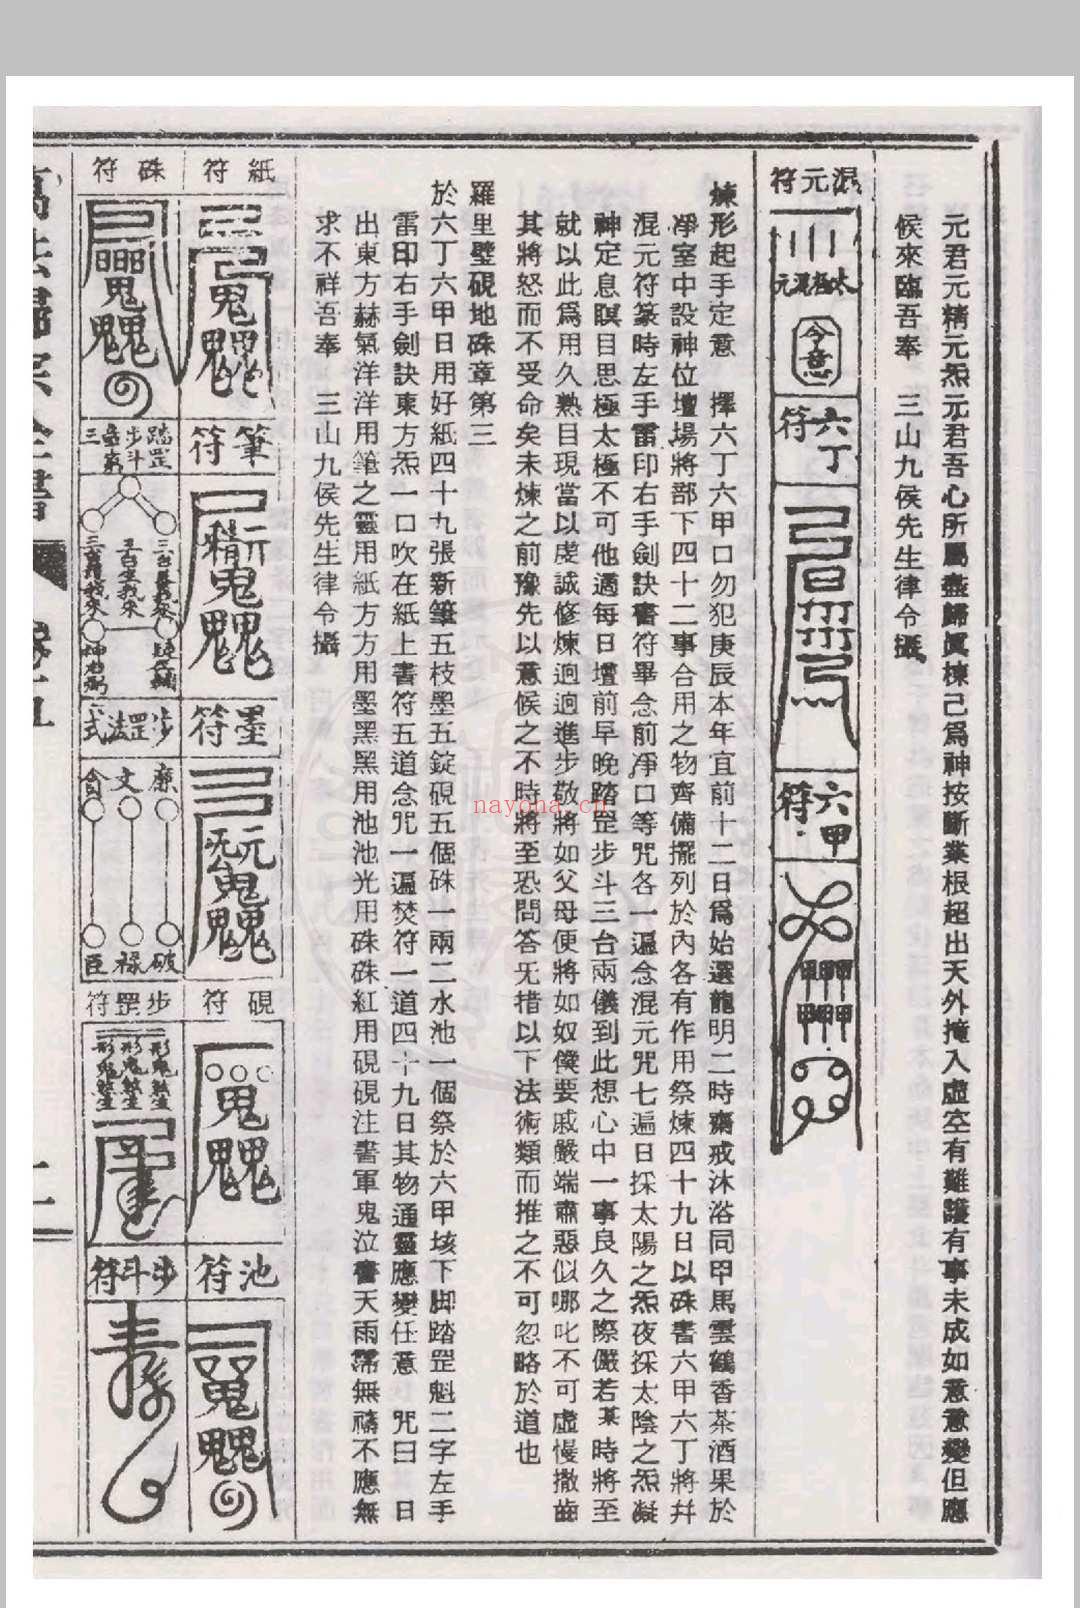 元君元精元炁元君吾心所屬盡歸眞棟己爲神按斷業根超出天外掩入虛空有難護有事未成如意意變但應
候來臨吾奉　三山九侯先生律令攝
混元符
混元
令意
六丁符
六甲符
煉形起手定意　擇六丁六甲口勿犯庚辰本年宜前十二日爲始選龍明二時齋戒沐浴同曱馬雲鶴香茶酒果於
凈室中設神位壇場將部下四十二事合用之物齊備擺列於內各有作用祭煉四十九日以硃書六甲六丁將幷
混元符篆時左手雷印右手劍訣書符畢念前凈口等咒各一遍念混元咒七遍日採太陽之炁夜採太陰之炁凝
神定息瞑目思極太極不可他適每日壇前早晚踏罡步斗三台兩儀到此想心中一事良久之際儼若某時將至
就以此爲用久熟目現當以虔誠修煉逈逈進步敬將如父母便將如奴僕要戚嚴端肅惡似哪叱不可虛慢撒齒
其將怒而不受命矣未煉之前豫先以意候之不時將至恐問答旡措以下法術類而推之不可忽略於道也
羅里璧硯地硃章第三
於六丁六甲日用好紙四十九張新筆五枝墨五錠硯五個硃一兩二水池一個祭於六甲垓下脚踏罡魁二字左手
雷印右手劍訣東方炁一口吹在紙上書符五道念咒一遍焚符一道四十九日其物通靈應變任意　咒曰　日
出東方赫氣洋洋用筆之靈用紙方方用墨黑黑用池池光用硃硃紅用硯硯注書軍鬼泣書天雨霈無禱不應無
求不祥吾奉　三山九侯先生律令攝
紙符
筆符
墨符
硯符
池符
硃符
踏罡步斗
步罡法式
廉文貪
破祿臣
步罡符
步斗符